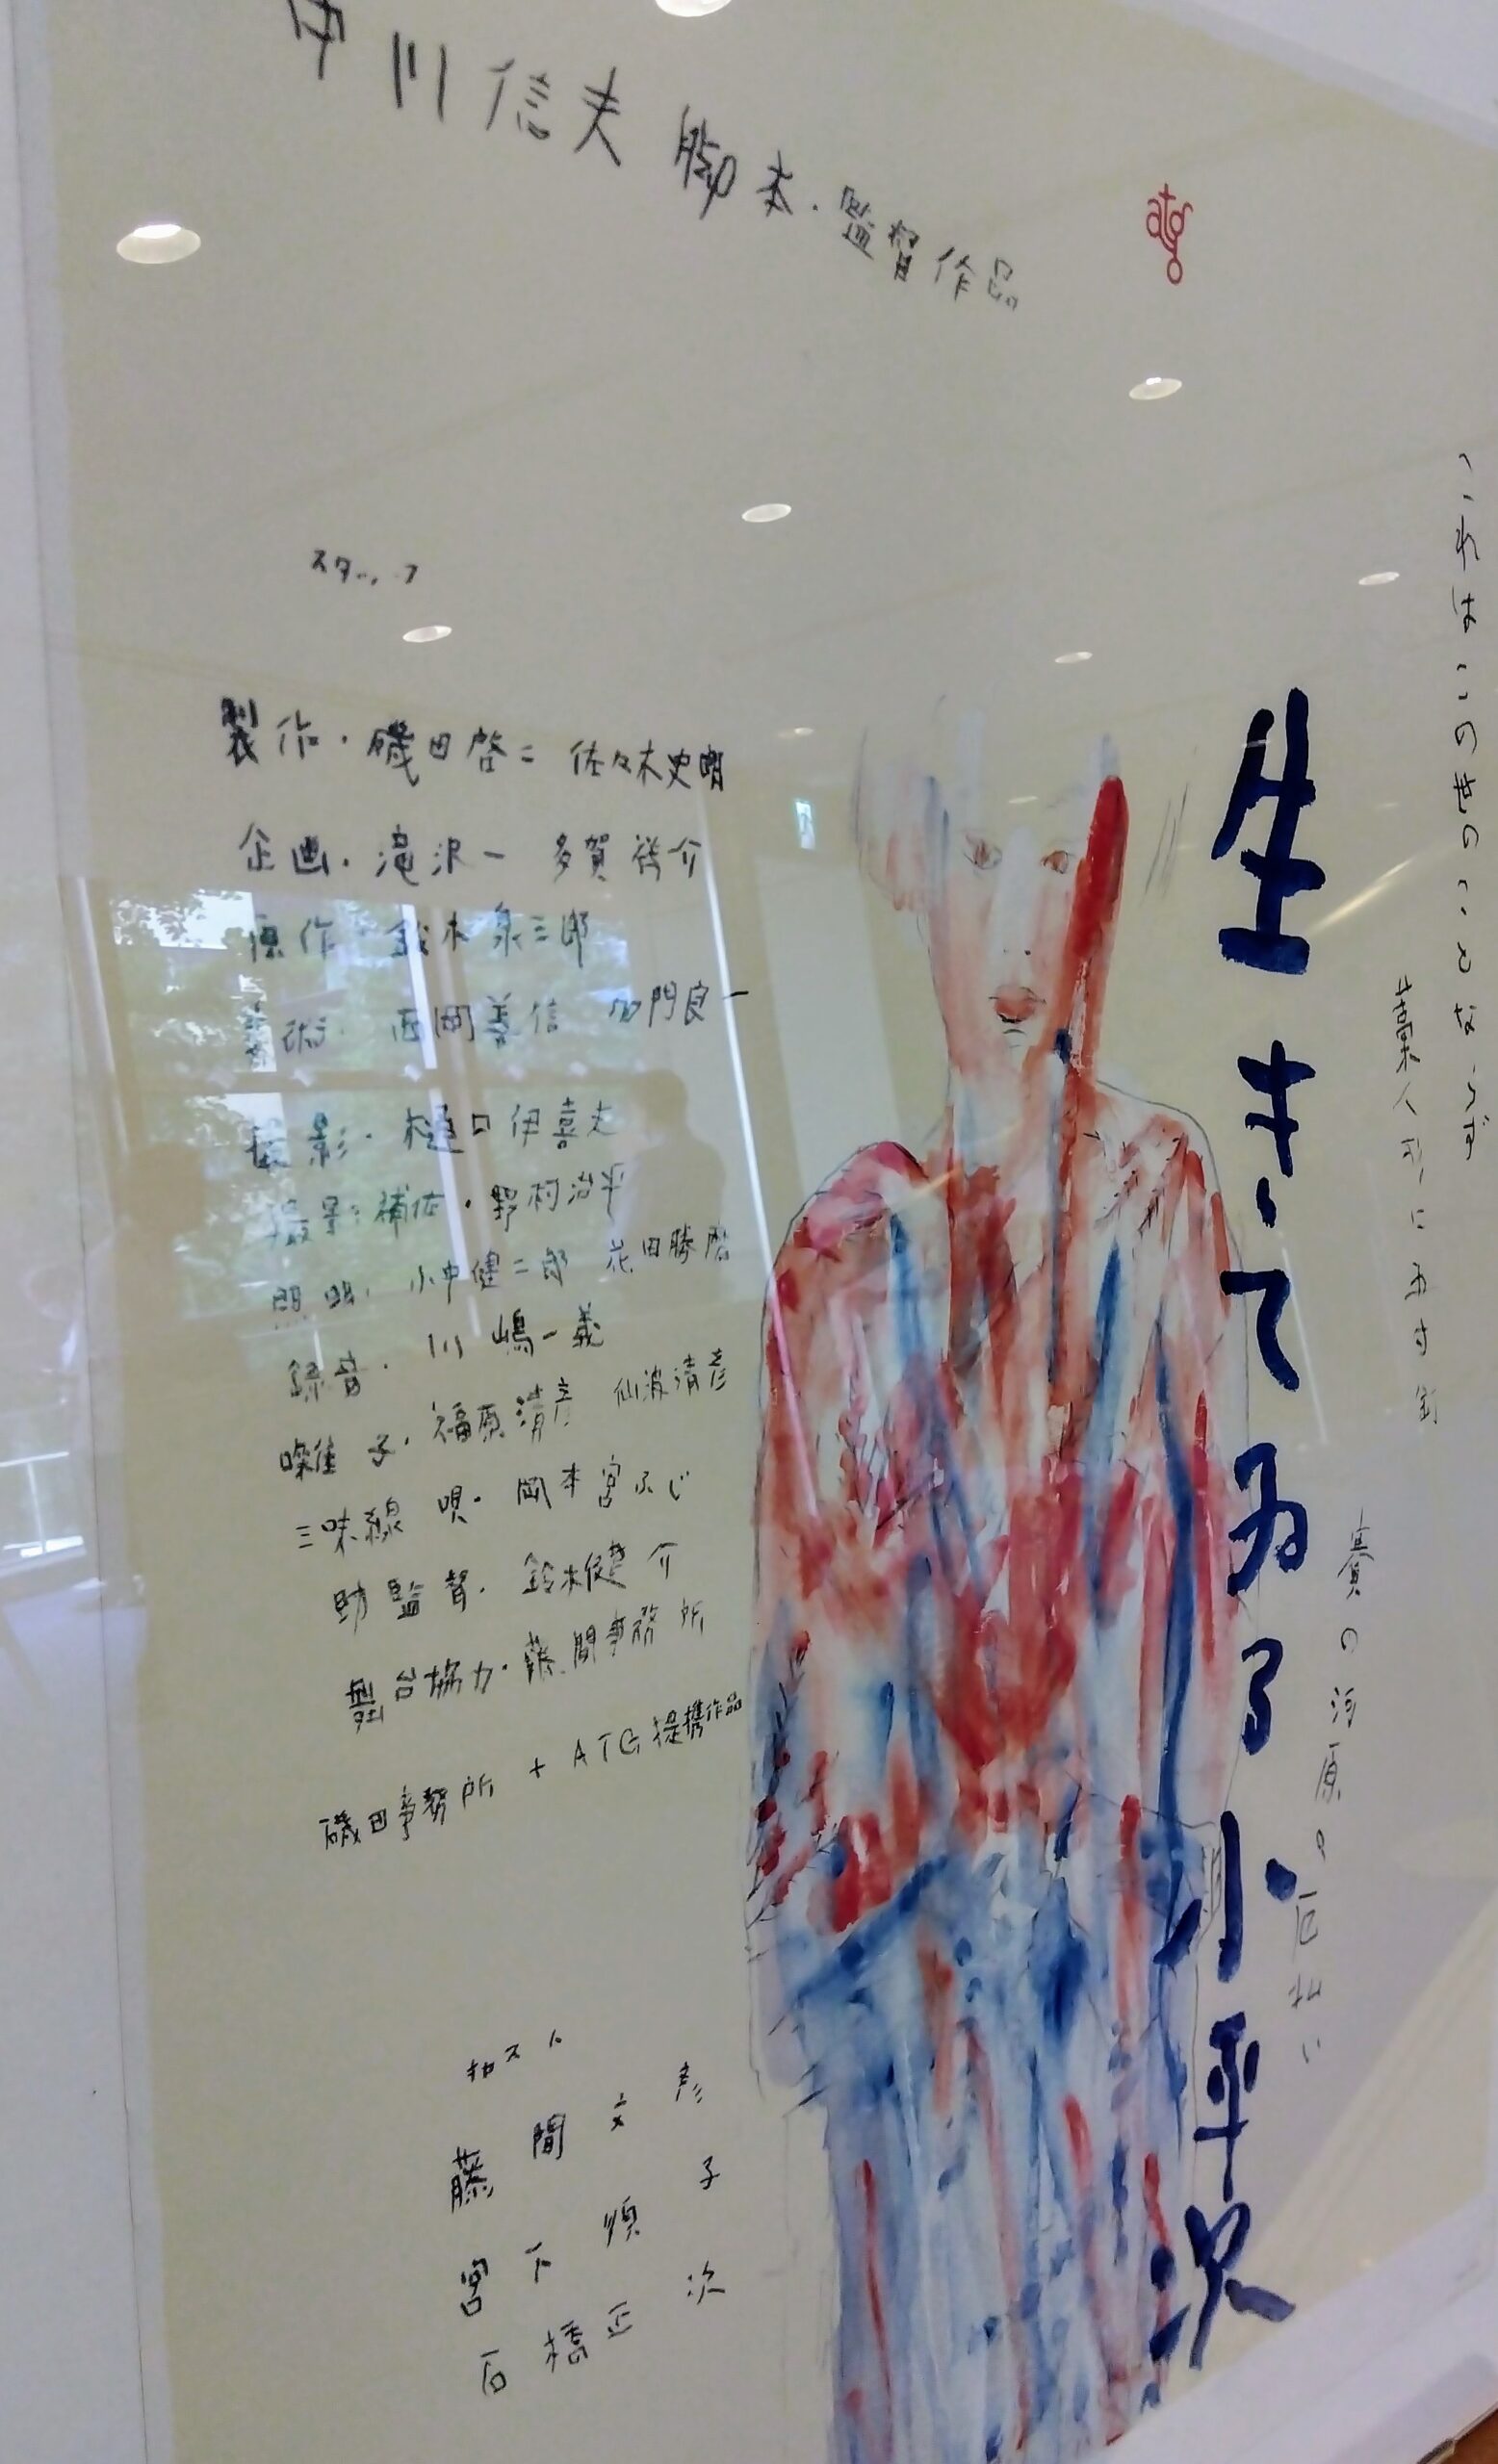 中川信夫 脚本・監督作品
atg
これはこの世のことならず
藁人形に五寸釘
賽の河原の石積い
生きてゐる小平次
スタッフ
製作・磯田啓二 佐々木史朗
企画・滝沢一 多賀祥介
原作・鈴木泉三郎
美術・西岡善信 加門良一
撮影・樋口伊喜夫
撮影補佐・野村治平
照明・小中健二郎 花田勝磨
録音・川嶋一義
囃子・福原清彦 仙波清彦
三味線 唄・岡本宮ふじ
助監督・鈴木健介
舞台協力・藤間事務所
磯田事務所 + ATG提携作品
キャスト
藤間文彦
宮下順子
石橋正次